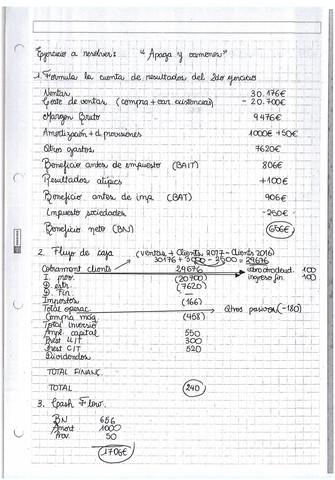 Ejercicio a resolver: "Apaga y vámonos"
1. Formula la cuenta de resultados del 2do ejercicio
Ventas 30.176€
Coste de ventas (compra + var. existencias) - 20.700€
Margen Bruto 9476€
Amortización + d. provisiones 1000€ + 50€
Otros gastos 7620€
Beneficio antes de impuesto (BAIT) 806€
Resultados atípics +100€
Beneficio antes de imp (BAT) 906€
Impuesto sociedades -250€
Beneficio neto (BN) 656€
2. Flujo de caja (Ventas + Clients 2017 - Clients 2016)
Cobrament clients 29676 100
I. prov (20700) ingreso fin. 100
D. estr. (7620)
D. Fin
Impostos (166)
Total operac. Otros pasivos (-180)
Compra maq (458)
Total inversio
Ampl. capital 550
Prest ll/T 300
Prest C/T 520
Dividendos
TOTAL FINANC.
TOTAL 240
3. Cash Flow.
BN 656
Amort 1000
Prov. 50
1706€